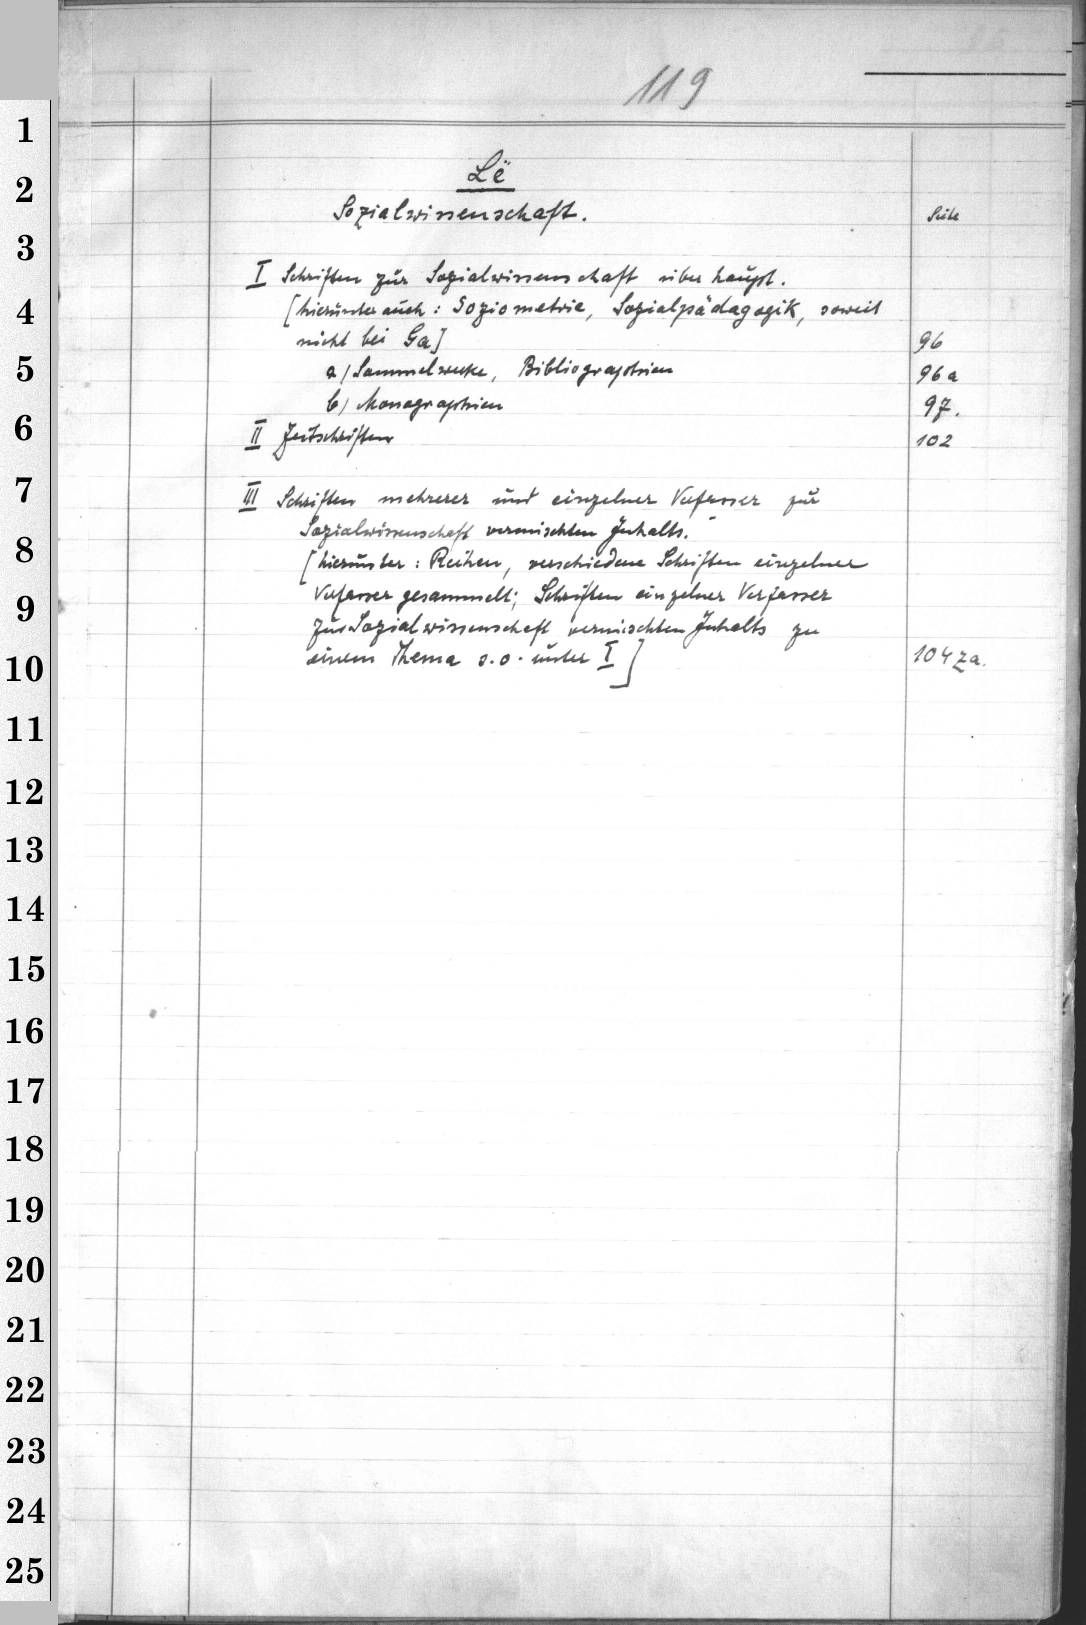 119
Lë
Sozialwissenschaft.
Seite
I Schriften zur Sozialwissenschaft überhaupt.
[hierunter auch: Soziometrie, Sozialpädagogik, soweit
nicht bei Ga] 96
a) Sammelwerke, Bibliographien 96a
b) Monographien 97.
II Zeitschriften 102
III Schriften mehrerer und einzelner Verfasser zur
Sozialwissenschaft vermischten Inhalts.
[hierunter: Reihen, verschiedene Schriften einzelner
Verfasser gesammelt; Schriften einzelner Verfasser
zur Sozialwissenschaft vermischten Inhalts zu
einem Thema s.o. unter I] 104za.
1
2
3
4
5
6
7
8
9
10
11
12
13
14
15
16
17
18
19
20
21
22
23
24
25